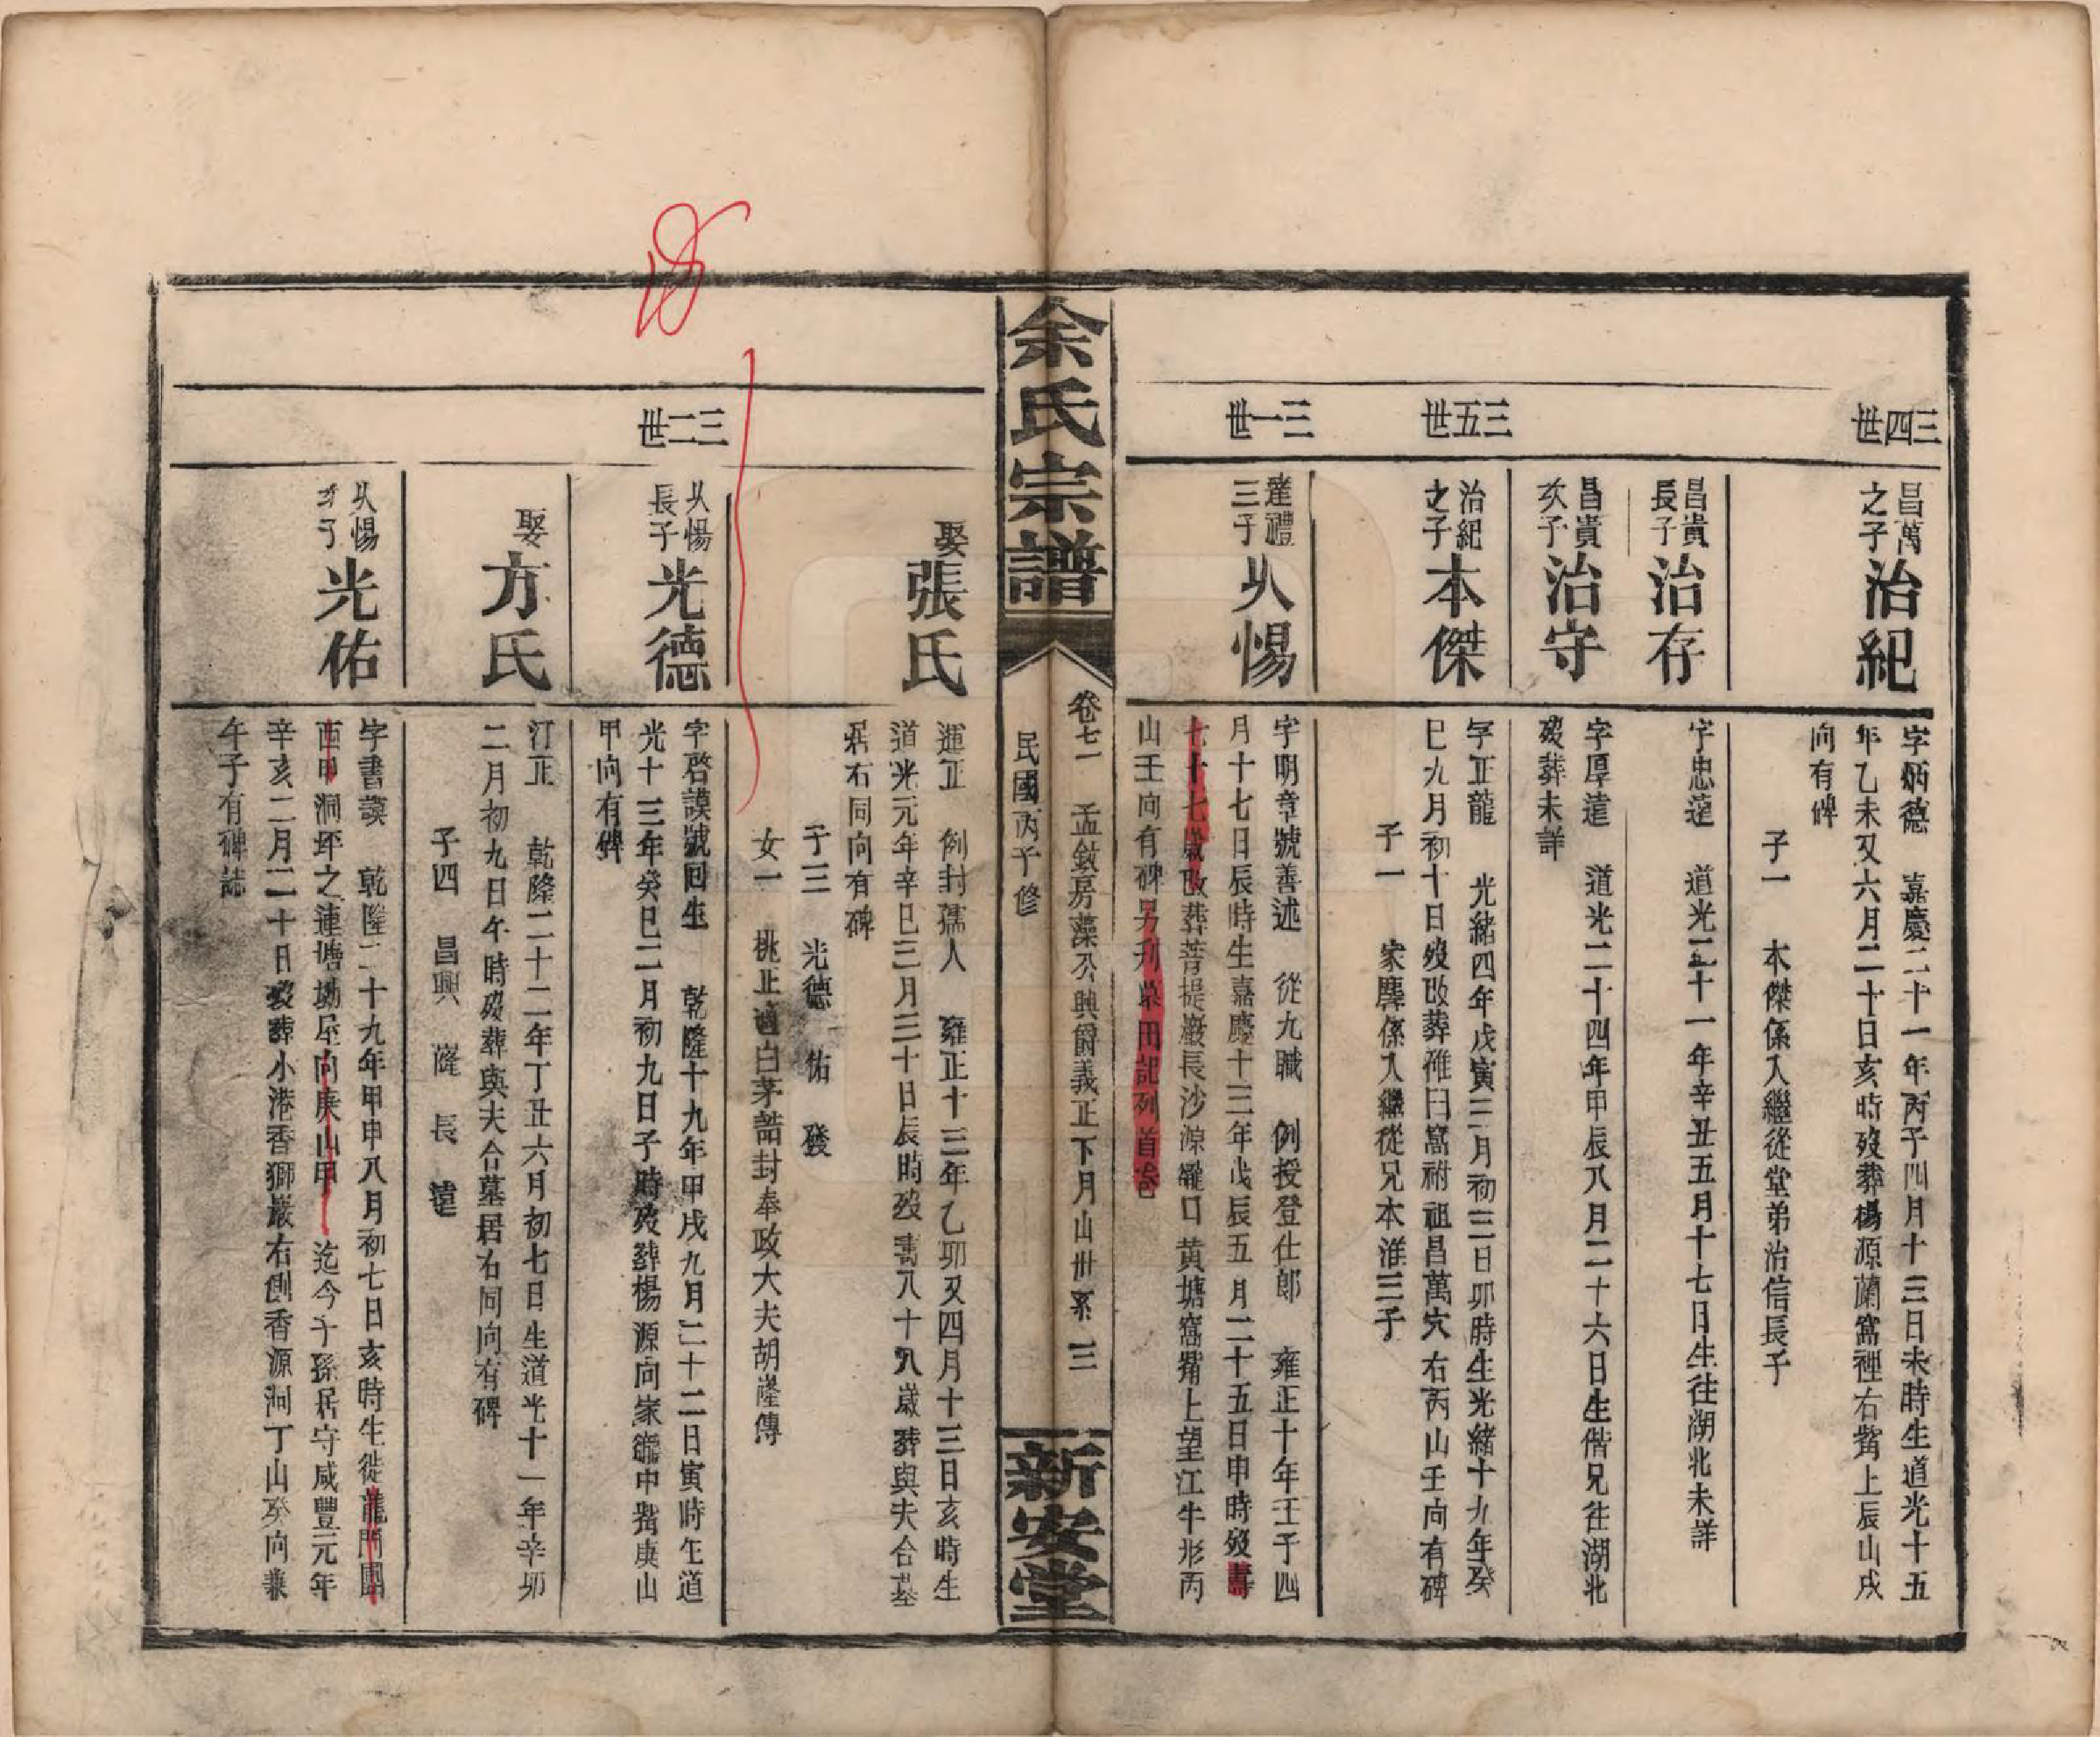 三四世
昌萬之子治紀
字炳德　嘉慶二十一年丙子四月十三日未時生道光十五
年乙未又六月二十日亥時歿葬楊源蘭窩裡右觜上辰山戌
向有碑
子一　本傑係入繼從堂弟治信長子
昌貴長子治存
字忠蓬　道光二十一年辛丑五月十七日生往湖北未詳
昌貴次子治守
字厚遠　道光二十四年甲辰八月二十六日生偕兄往湖北
歿葬未詳
三五世
治紀之子本傑
字正龍　光緒四年戊寅三月初三日卯時生光緒十九年癸
巳九月初十日歿改葬碓臼窩祔祖昌萬穴右丙山壬向有碑
子一　家塵係入繼從兄本淮三子
三一世
達禮三子㕥惕
字明章號善述　從九職　例授登仕郎　雍正十年壬子四
月十七日辰時生嘉慶十三年戊辰五月二十五日申時歿壽
七十七歲改葬菩提巖長沙源龍口黄塘窩觜上望江牛形丙
山壬向有碑另刋墓田記列首卷
余氏宗譜
卷七一　孟敘房藻公興爵義正下月山世系　三
民國丙子修
新安堂
娶張氏
運正　例封孺人　雍正十三年乙卯又四月十三日亥時生
道光元年辛巳三月三十日辰時歿壽八十八歲葬與夫合墓
居右同向有碑
子三　光德　佑　發
女一　桃正適白茅誥封奉政大夫胡隆傳
三二世
㕥惕長子光德
字啓謨號回生　乾隆十九年甲戌九月二十二日寅時生道
光十三年癸巳二月初九日子時歿葬楊源向家龍中觜庚山
甲向有碑
娶方氏
汀正　乾隆二十二年丁丑六月初七日生道光十一年辛卯
二月初九日午時歿葬與夫合墓居右同向有碑
子四　昌興　隆　長　遠
㕥惕次子光佑
字書謨　乾隆二十九年甲申八月初七日亥時生徙龍門團
酉甲洞坪之連塘塝屋向庚山甲　迄今子孫居守咸豐元年
辛亥二月二十日歿葬小港香獅巖右側香源洞丁山癸向兼
午子有碑誌